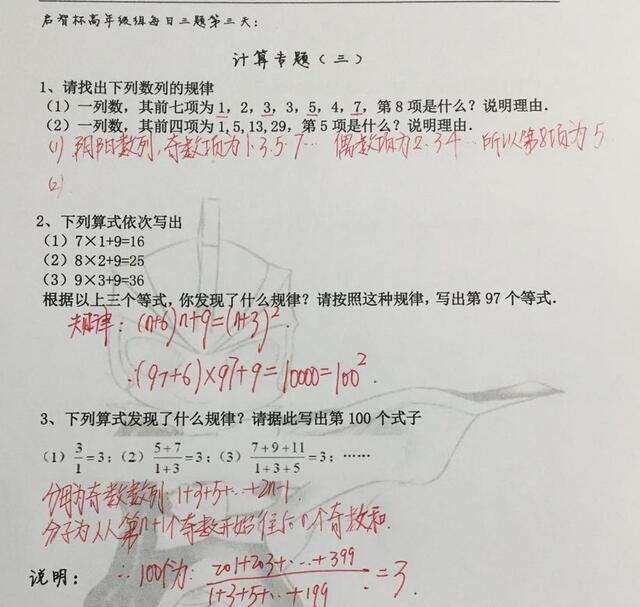 启智杯高年级组每日三题第三天:
计算专题(三)
1、请找出下列数列的规律
(1)一列数,其前七项为 1,2,3,3,5,4,7,第 8 项是什么?说明理由.
(2)一列数,其前四项为 1,5,13,29,第 5 项是什么?说明理由.
(1) 阴阳数列,奇数项为1.3.5.7… 偶数项为2.3.4… 所以第8项为5
(2)
2、下列算式依次写出
(1)7×1+9=16
(2)8×2+9=25
(3)9×3+9=36
根据以上三个等式,你发现了什么规律?请按照这种规律,写出第 97 个等式.
规律: (n+6)n+9=(n+3)².
∴(97+6)×97+9=10000=100².
3、下列算式发现了什么规律?请据此写出第 100 个式子
(1) 3/1=3;(2) (5+7)/(1+3)=3;(3) (7+9+11)/(1+3+5)=3;……
分母为奇数数列 1+3+5+…+2n-1
分子为从第n+1个奇数开始往后n个奇数和.
说明: ∴100个为: (201+203+…+399)/(1+3+5+…+199) =3.